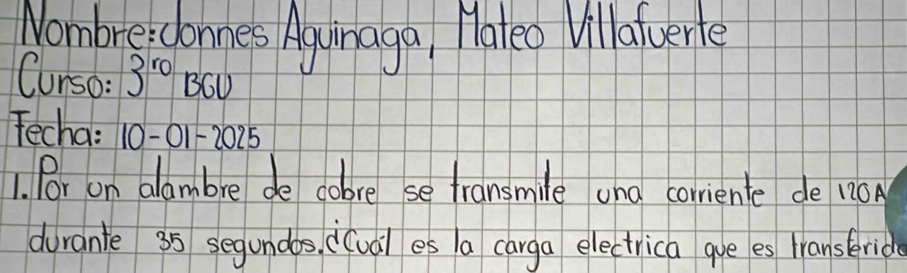 Nombre: Jonnes Aguinaga, Mateo Villafuerte
Curso: 3ro BGU
Fecha: 10-01-2025
1. Por un alambre de cobre se transmite una corriente de 120A
durante 35 segundos. ¿Cuál es la carga electrica que es transferida